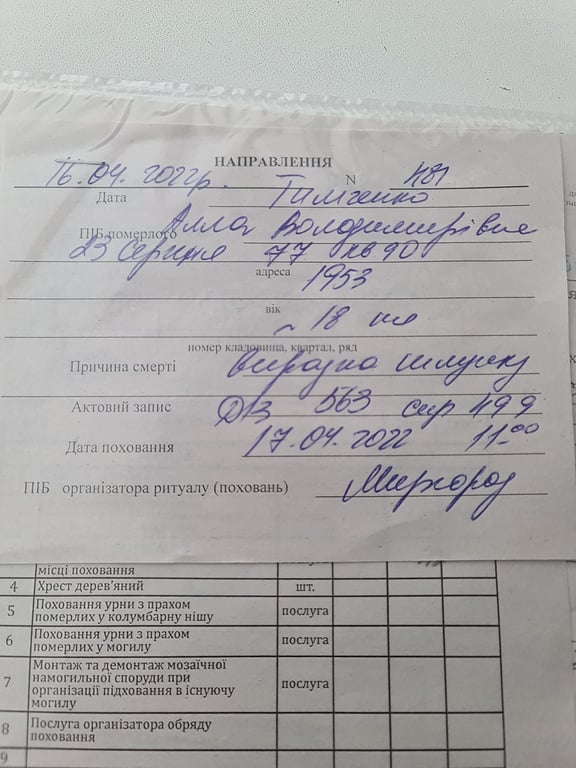 НАПРАВЛЕННЯ
16.04.2022р. N 481
Дата Тимченко
ПІБ померлого Алла Володимирівна
23 Серпня 77 кв 90
адреса
1953
вік
~ 18 ша
номер кладовища, квартал, ряд
Причина смерті Виразка шлунку
Актовий запис ДІЗ 563 сир 499
Дата поховання 17.04.2022 11-00
ПІБ організатора ритуалу (поховань) Миргород
місці поховання
4 Хрест дерев'яний шт.
5 Поховання урни з прахом
померлих у колумбарну нішу послуга
6 Поховання урни з прахом
померлих у могилу послуга
7 Монтаж та демонтаж мозаїчної
намогильної споруди при
організації підховання в існуючу послуга
могилу
8 Послуга організатора обряду
поховання
9